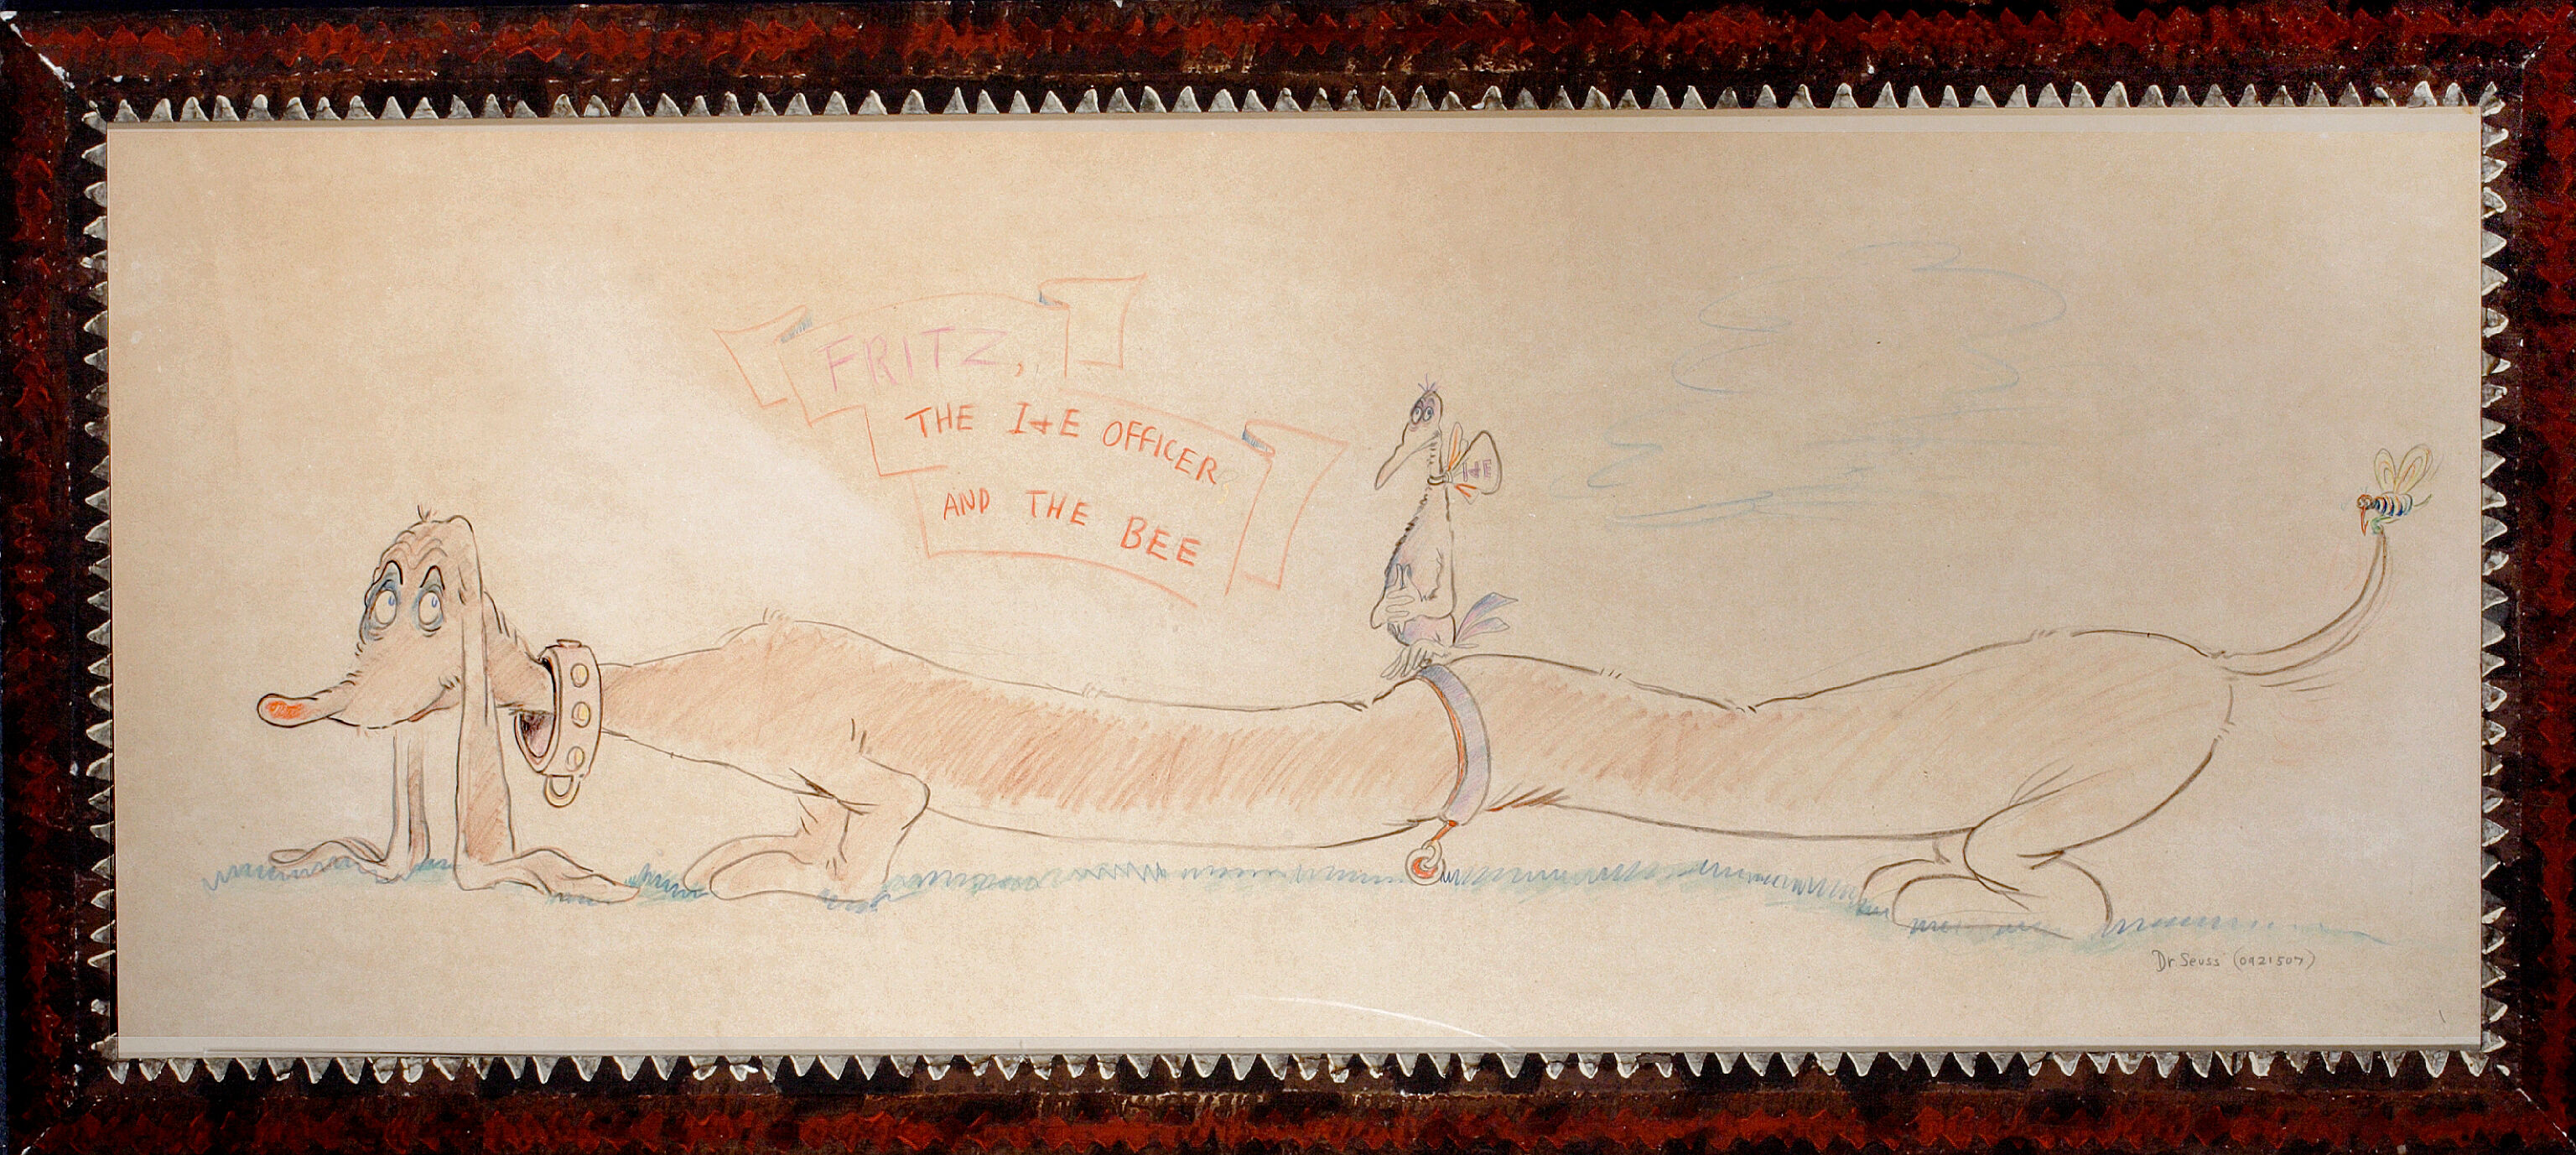 FRITZ,
THE I&E OFFICER
AND THE BEE
I&E
Dr. Seuss (0921507)